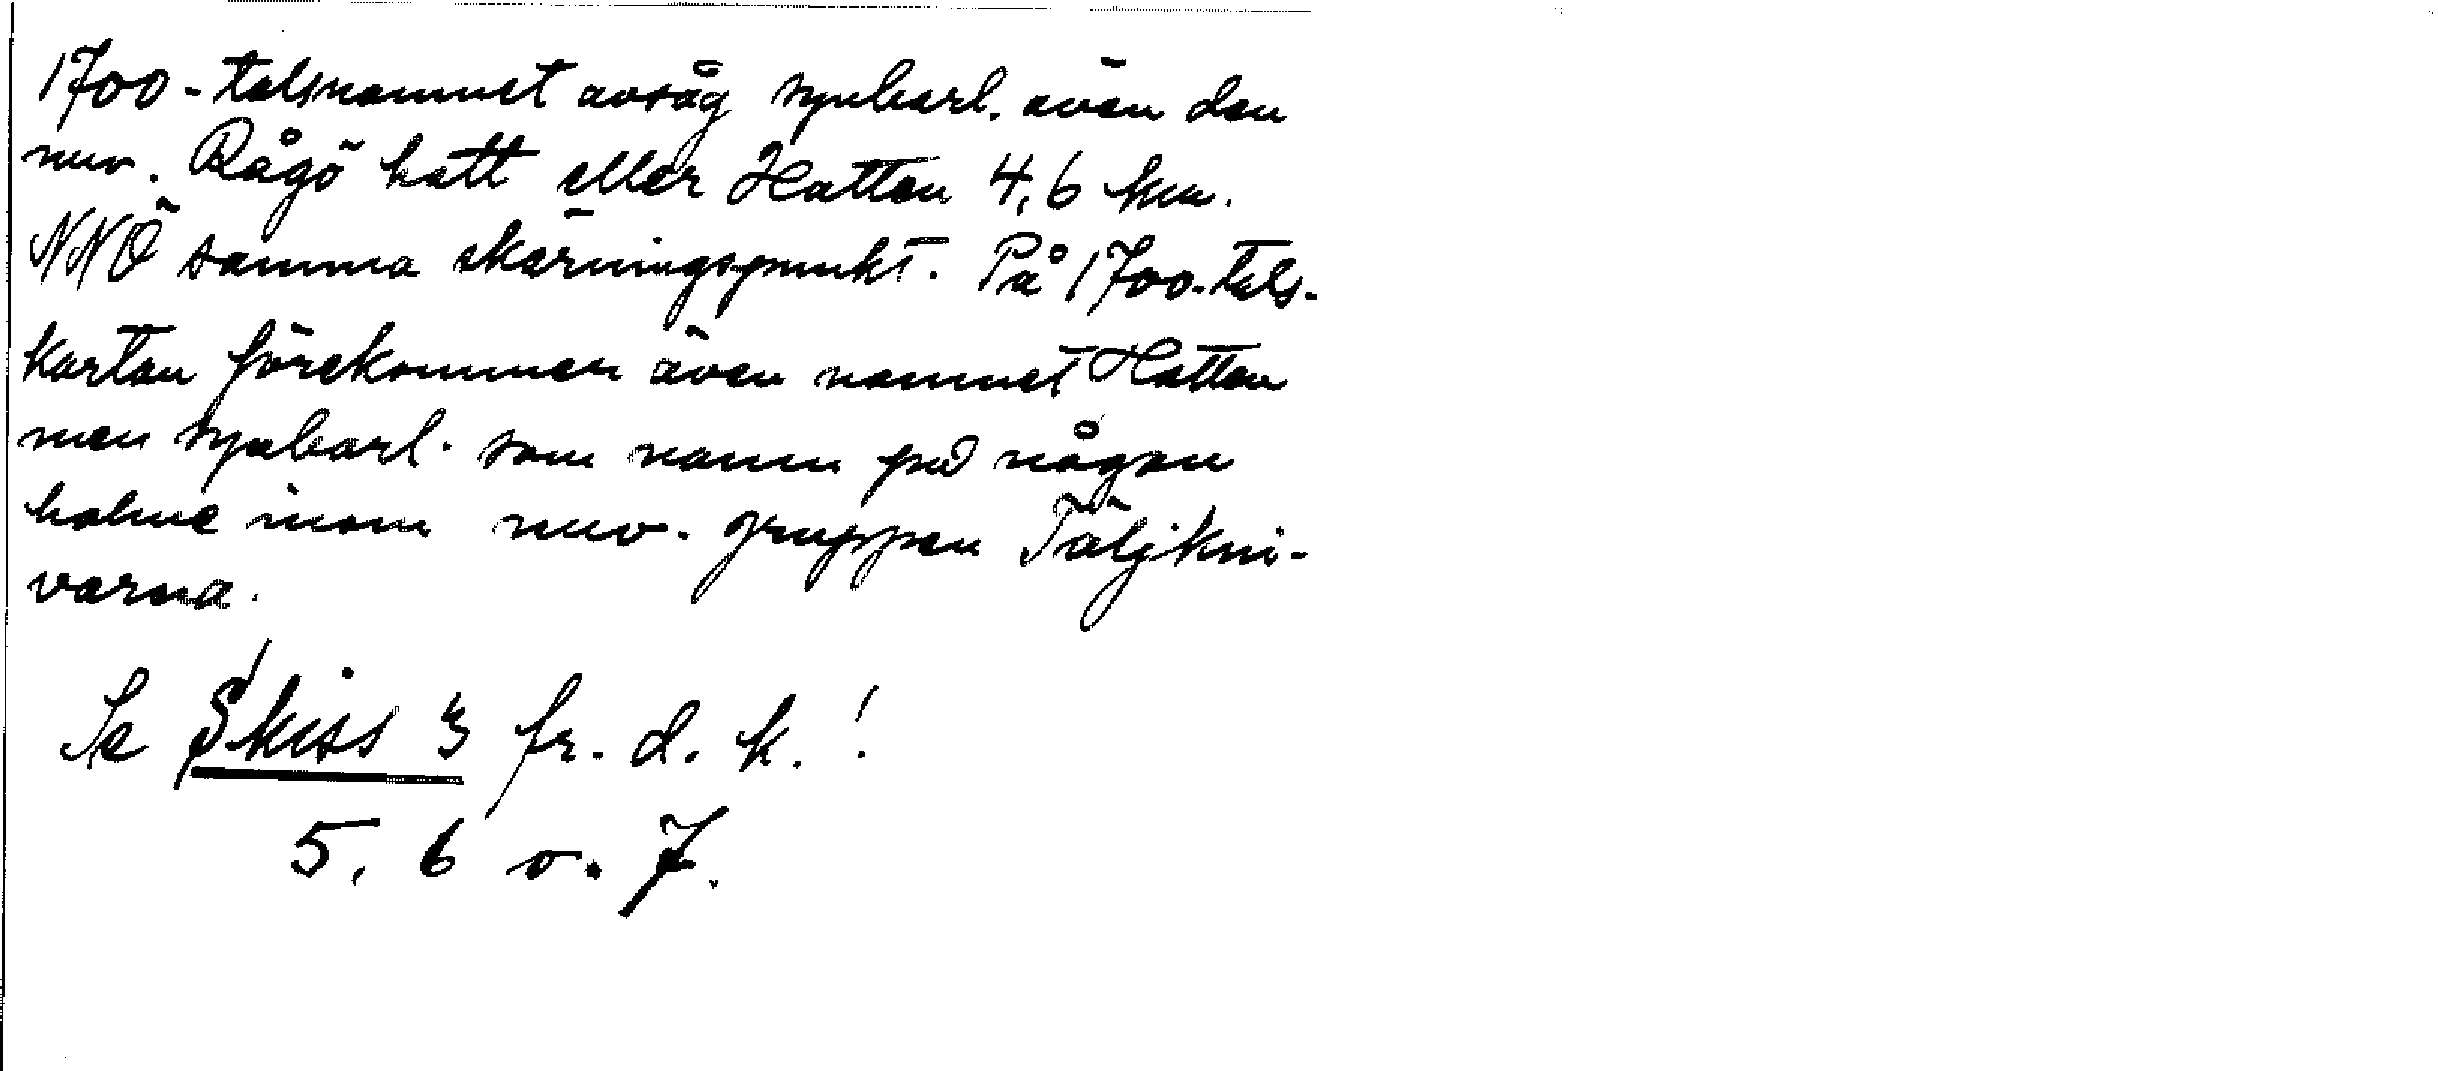 1700-talsnamnet avsåg synbarl. även den
nuv. Rågö hatt eller Hatten 4,6 km.
NNÖ samma skärningspunkt. På 1700-tals-
kartan förekommer även namnet Hatten
men synbarl. som namn på någon
holme inom nuv. gruppen Täljkni-
varna.
Se Skiss 3 fr. d. k.!
5, 6 o. 7.